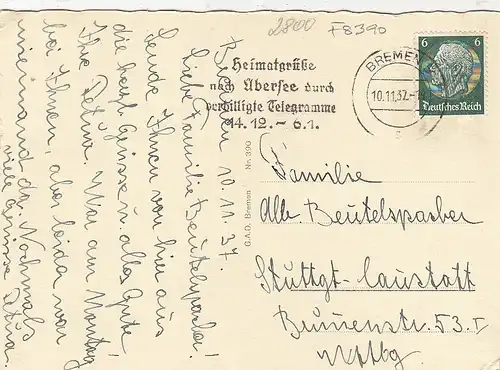 2800
F8390
Heimatgrüße
nach Übersee durch
verbilligte Telegramme
14.12. – 6.1.
BREMEN
10.11.37.-1
6 6
Deutsches Reich
Bremen 10.11.37.
Liebe Familie Beutelsparber!
Sende Ihnen von hier aus
die herzl. Grüsse u. alles Gute
Ihre Petrua. War am Montag
bei Ihnen, aber leider war
niemand da. Nochmals
viele Grüsse Petrua.
G.A.D. Bremen Nr. 390
Familie
Alb. Beutelsparber
Stuttgt-Canstatt
Brunnenstr. 53.I
Wttbg